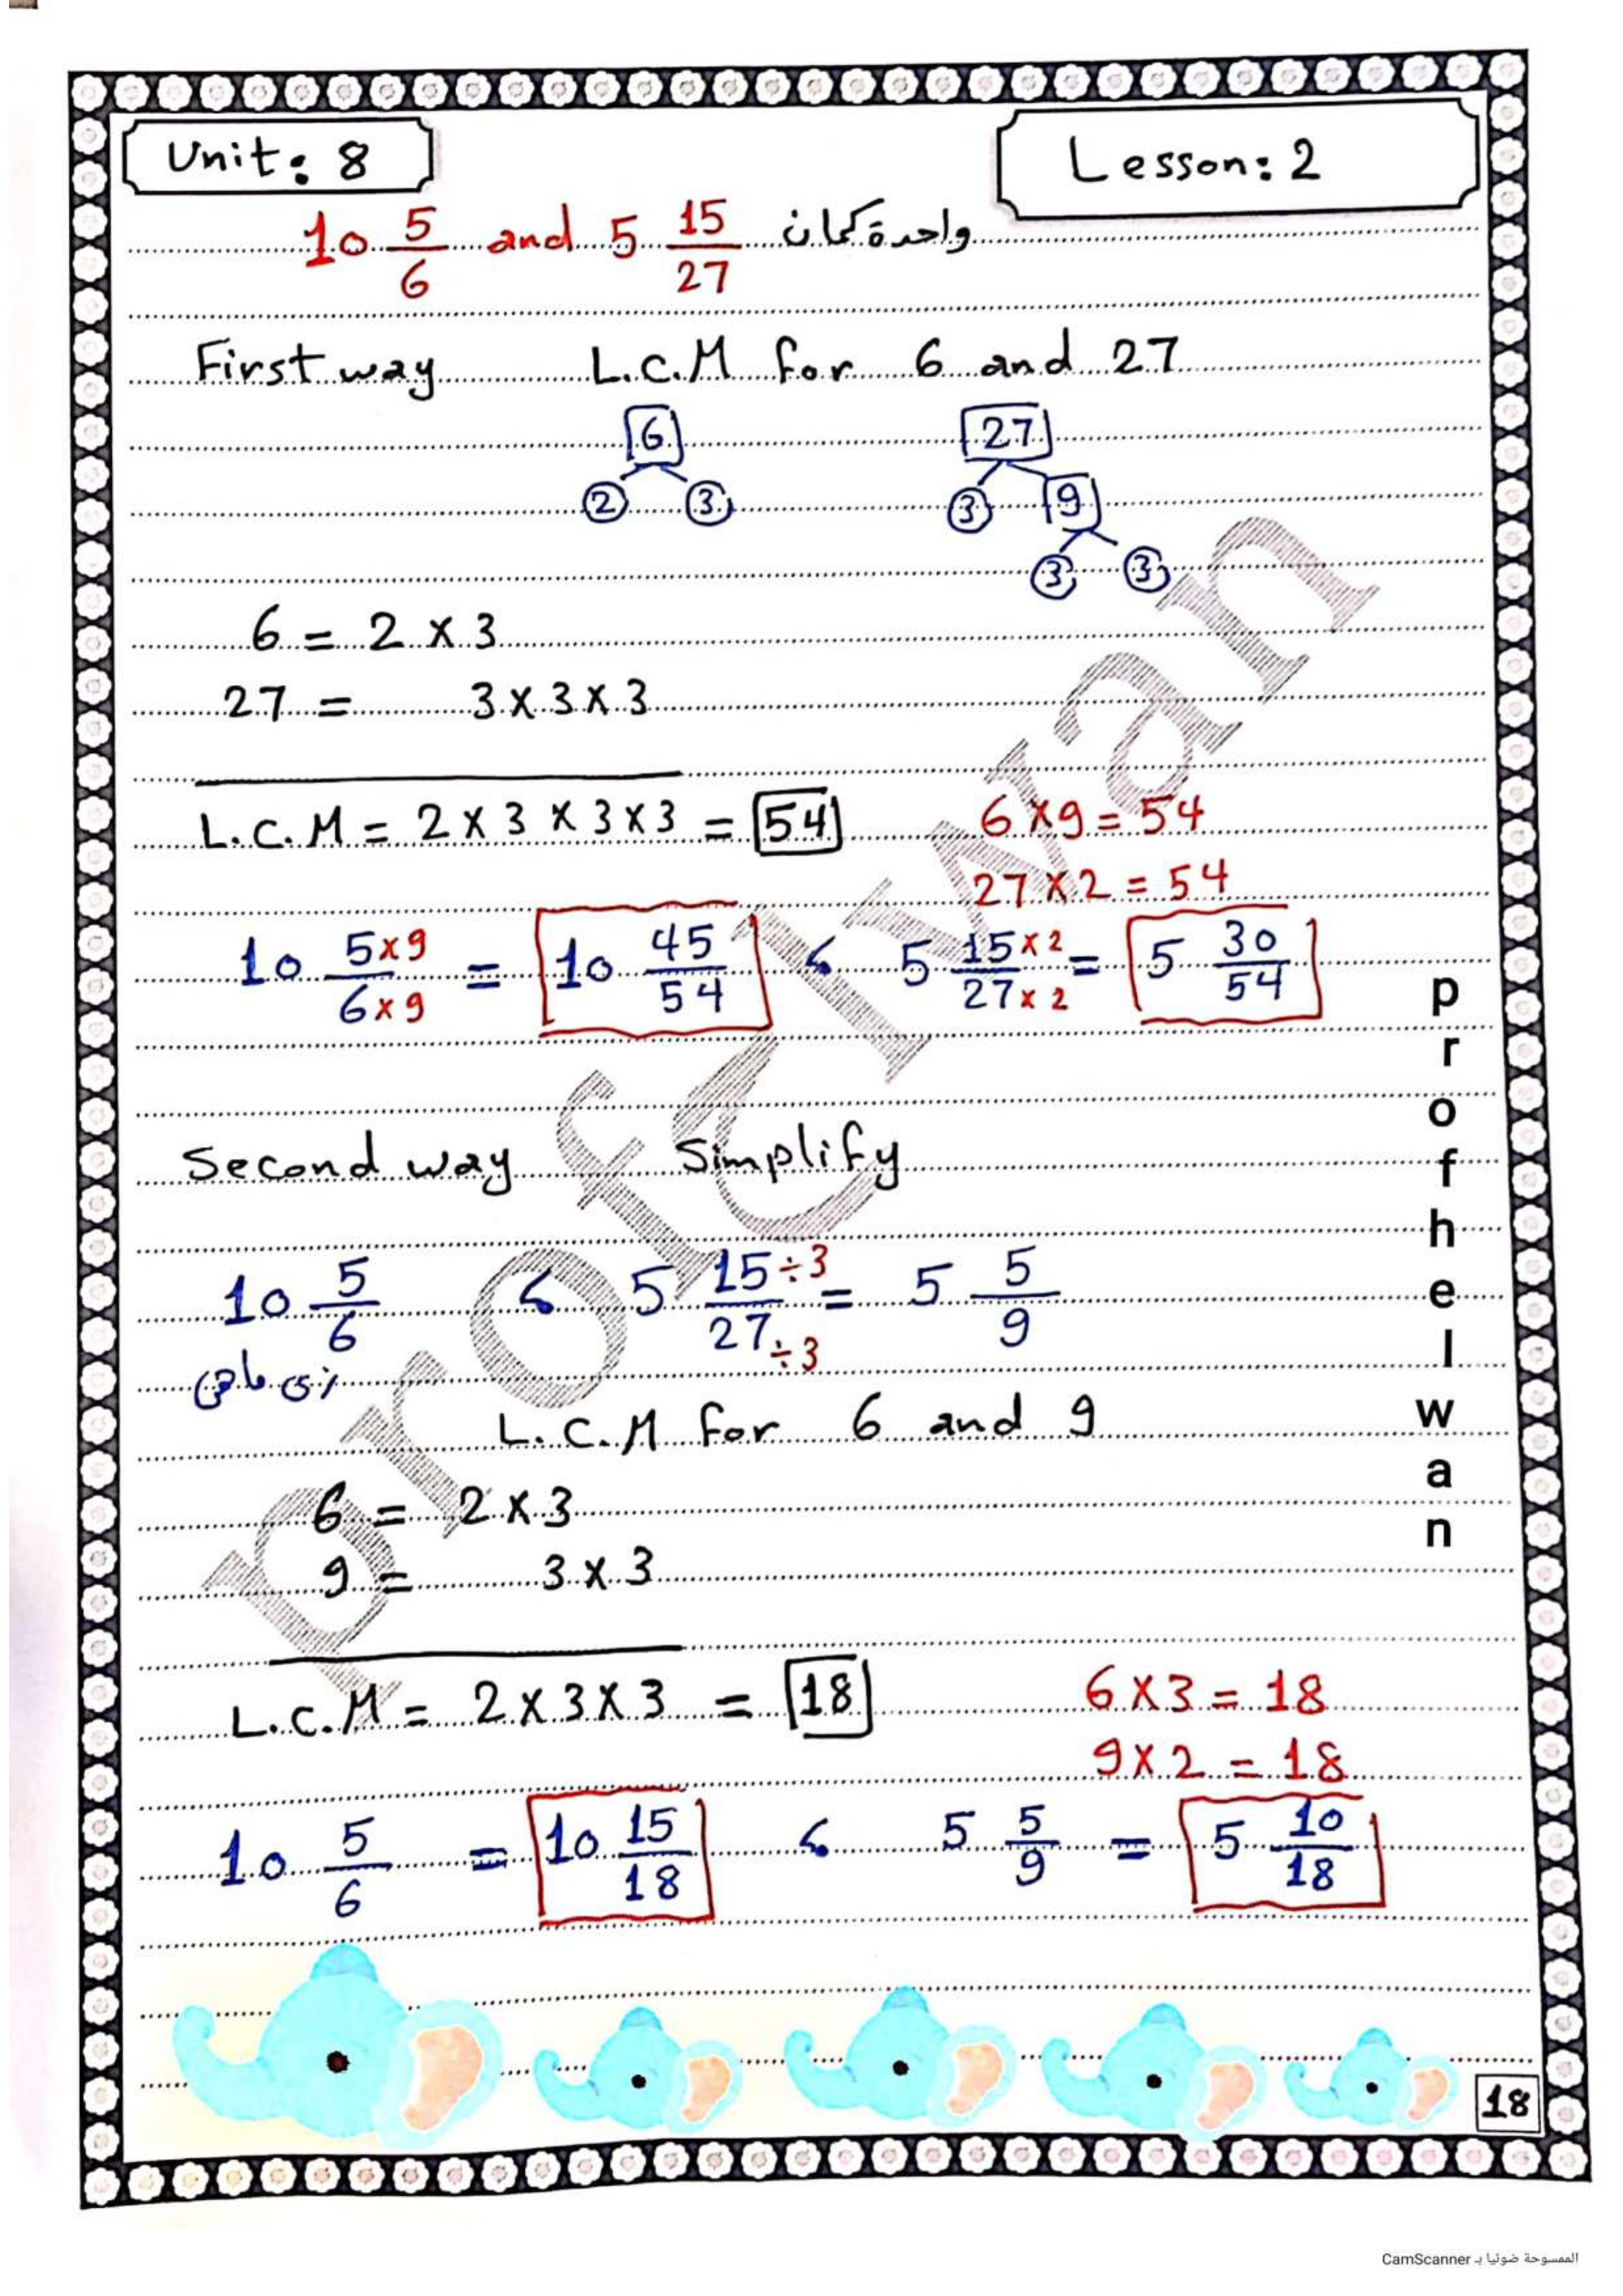 Unit: 8
Lesson: 2
10 5/6 and 5 15/27 واحدة كمان
First way L.C.M for 6 and 27
6 27
2 3 3 9
3 3
6 = 2 x 3
27 = 3 x 3 x 3
L.C.M = 2 x 3 x 3 x 3 = 54 6 x 9 = 54
27 x 2 = 54
10 5x9/6x9 = 10 45/54 , 5 15x2/27x2 = 5 30/54
Second way Simplify
10 5/6 , 5 15÷3/27÷3 = 5 5/9
زى ماهى
L.C.M for 6 and 9
6 = 2 x 3
9 = 3 x 3
L.C.M = 2 x 3 x 3 = 18 6 x 3 = 18
9 x 2 = 18
10 5/6 = 10 15/18 , 5 5/9 = 5 10/18
prof helwan
Prof Elwan
18
الممسوحة ضوئيا بـ CamScanner